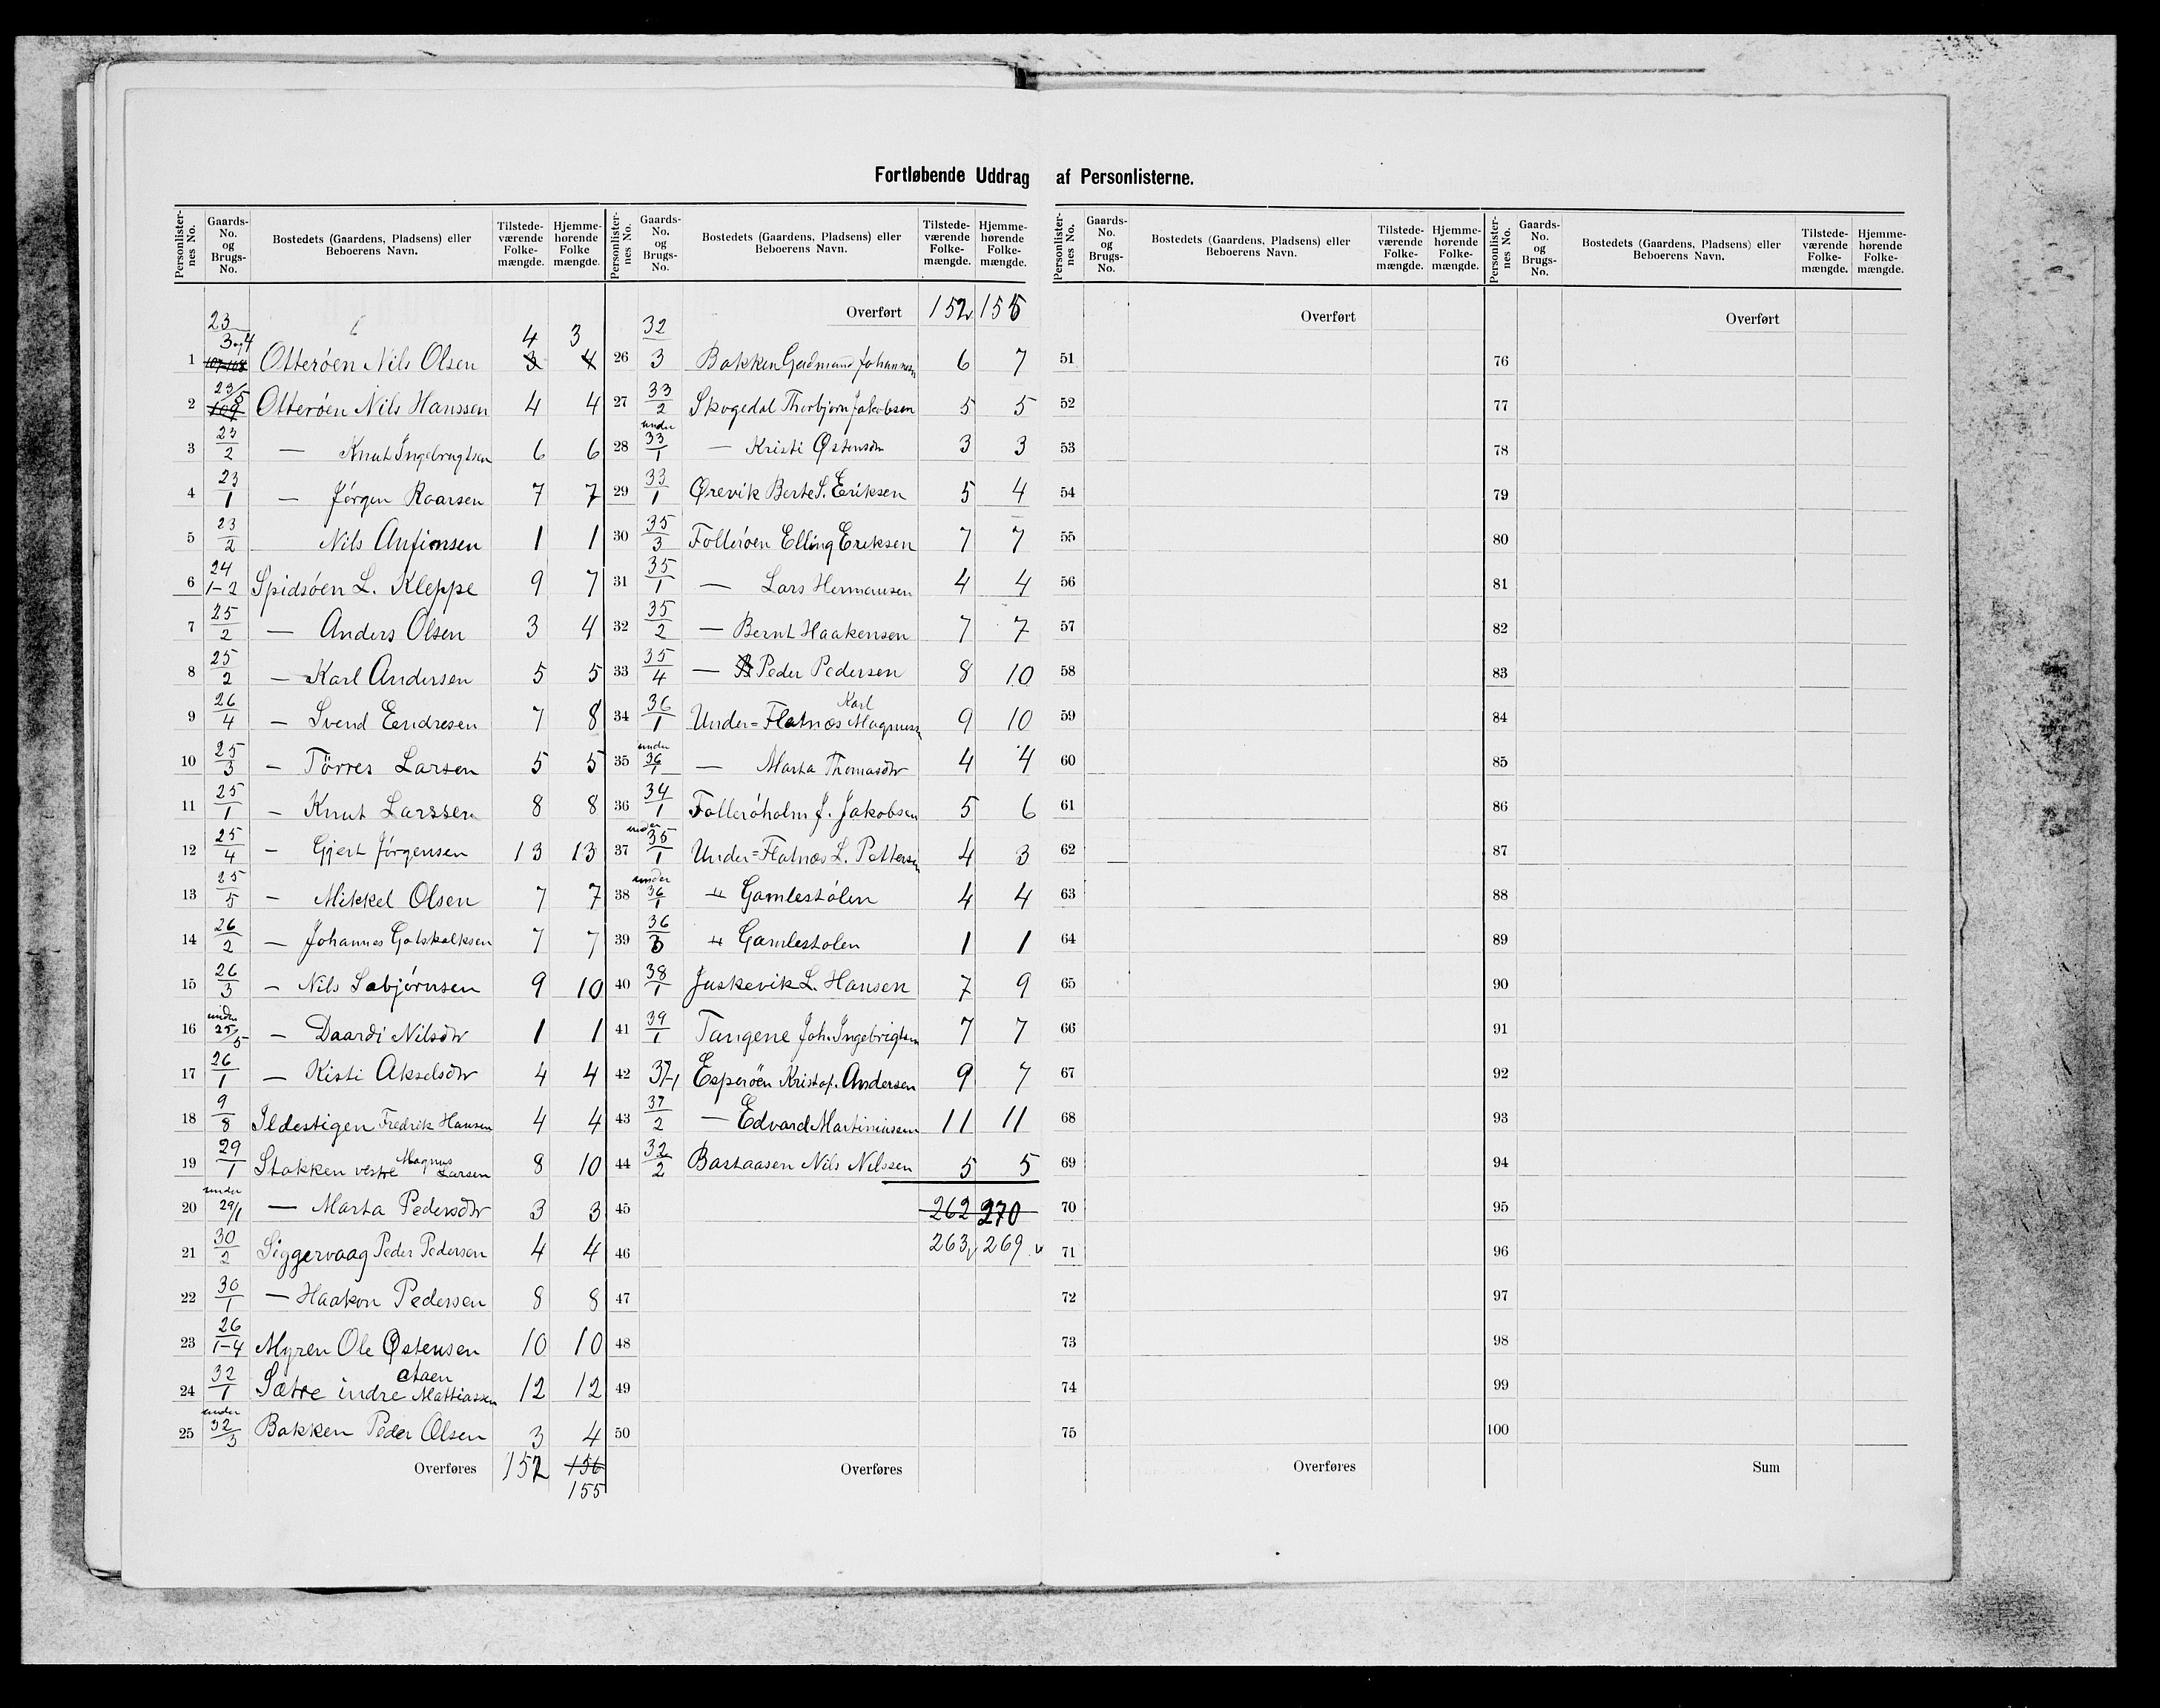 Fortløbende Uddrag af Personlisterne.
Personlister-nes No. Gaards-No. og Brugs-No. Bostedets (Gaardens, Pladsens) eller Beboerens Navn. Tilstede-værende Folke-mængde. Hjemme-hørende Folke mængde.
1 23 3 og 4 107-108 Otterøen Nils Olsen 4 3 3 4
2 23/5 109 Otterøen Nils Hanssen 4 4
3 23/2 — Knut Ingebrugtsen 6 6
4 23/1 — Jørgen Roarsen 7 7
5 23/2 Nils Anfinsen 1 1
6 24/1-2 Spidsöen L. Kleppe 9 7
7 25/2 — Anders Olsen 3 4
8 25/2 — Karl Andersen 5 5
9 26/4 — Svend Eendresen 7 8
10 25/3 — Törres Larsen 5 5
11 25/1 — Knut Larssen 8 8
12 25/4 — Gjert Jørgensen 13 13
13 25/5 — Mikkel Olsen 7 7
14 26/2 — Johannes Gotskalksen 7 7
15 26/3 — Nils Sabjørnsen 9 10
16 under 25/5 — Daardi Nilsdtr 1 1
17 26/1 — Kisti Akselsdtr 4 4
18 9/8 Ildestigen Fredrik Hansen 4 4
19 29/1 Stokken vestre Magnus Larsen 8 10
20 under 29/1 — Marta Pedersdtr 3 3
21 30/2 Siggervaag Peder Pedersen 4 4
22 30/1 — Haakon Pedersen 8 8
23 26/1-4 Myren Ole Østensen 10 10
24 32/1 Sætre indre Mattiassen 12 12
25 under 32/3 Bakken Peder Olsen 3 4
Overføres 152 156
155
Personlister-nes No. Gaards-No. og Brugs-No. Bostedets (Gaardens, Pladsens) eller Beboerens Navn. Tilstede-værende Folke-mængde. Hjemme-hørende Folke-mængde.
Overført 152 155
26 32/3 Bakken Gudmund Johannesen 6 7
27 33/2 Skogedal Thorbjørn Jakobsen 5 5
28 under 33/1 — Kristi Østensdtr 3 3
29 33/1 Ørevik Berte S. Eriksen 5 4
30 35/3 Folleröen Elling Eriksen 7 7
31 35/1 — Lars Hermansen 4 4
32 35/2 — Bernt Haakensen 7 7
33 35/4 — Peder Pedersen 8 10
34 36/1 Under=Flatnæs Karl Magnusen 9 10
35 under 36/1 — Marta Thomasdtr 4 4
36 34/1 Folleröholm J. Jakobsen 5 6
37 under 35/1 Under=Flatnæs L. Pettersen 4 3
38 under 36/1 " Gamlestølen 4 4
39 36/3 " Gamlestølen 1 1
40 38/1 Juskevik L. Hansen 7 9
41 39/1 Tangene Joh. Ingebrigtsen 7 7
42 37/1 Esperöen Kristof. Andersen 9 7
43 37/2 — Edvard Martiniusen 11 11
44 32/2 Bastaasen Nils Nilssen 5 5
45 262 270
46 263 269
47
48
49
50
Overføres
Personlister-nes No. Gaards-No. og Brugs-No. Bostedets (Gaardens, Pladsens) eller Beboerens Navn. Tilstede-værende Folke-mængde. Hjemme-hørende Folke-mængde.
Overført
51
52
53
54
55
56
57
58
59
60
61
62
63
64
65
66
67
68
69
70
71
72
73
74
75
Overføres
Personlister-nes No. Gaards-No. og Brugs-No. Bostedets (Gaardens, Pladsens) eller Beboerens Navn. Tilstede-værende Folke-mængde. Hjemme-hørende Folke-mængde.
Overført
76
77
78
79
80
81
82
83
84
85
86
87
88
89
90
91
92
93
94
95
96
97
98
99
100
Sum